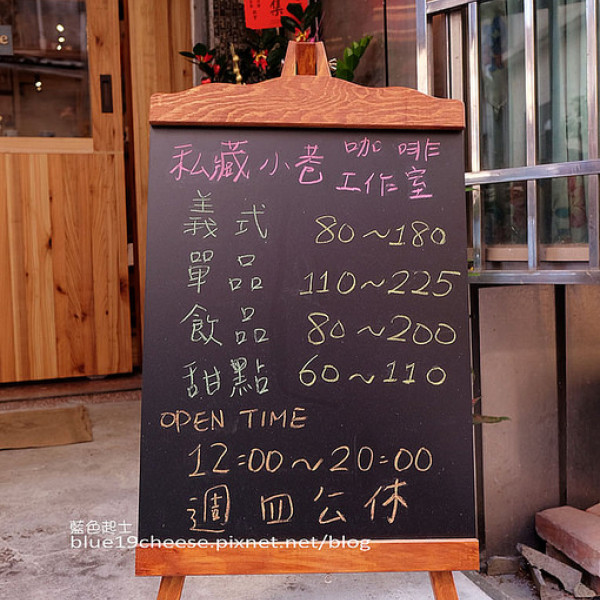 集
私藏小巷 咖啡
工作室
義式 80~180
單品 110~225
飲品 80~200
甜點 60~110
OPEN TIME
12:00~20:00
週四公休
藍色起士
blue19cheese.pixnet.net/blog